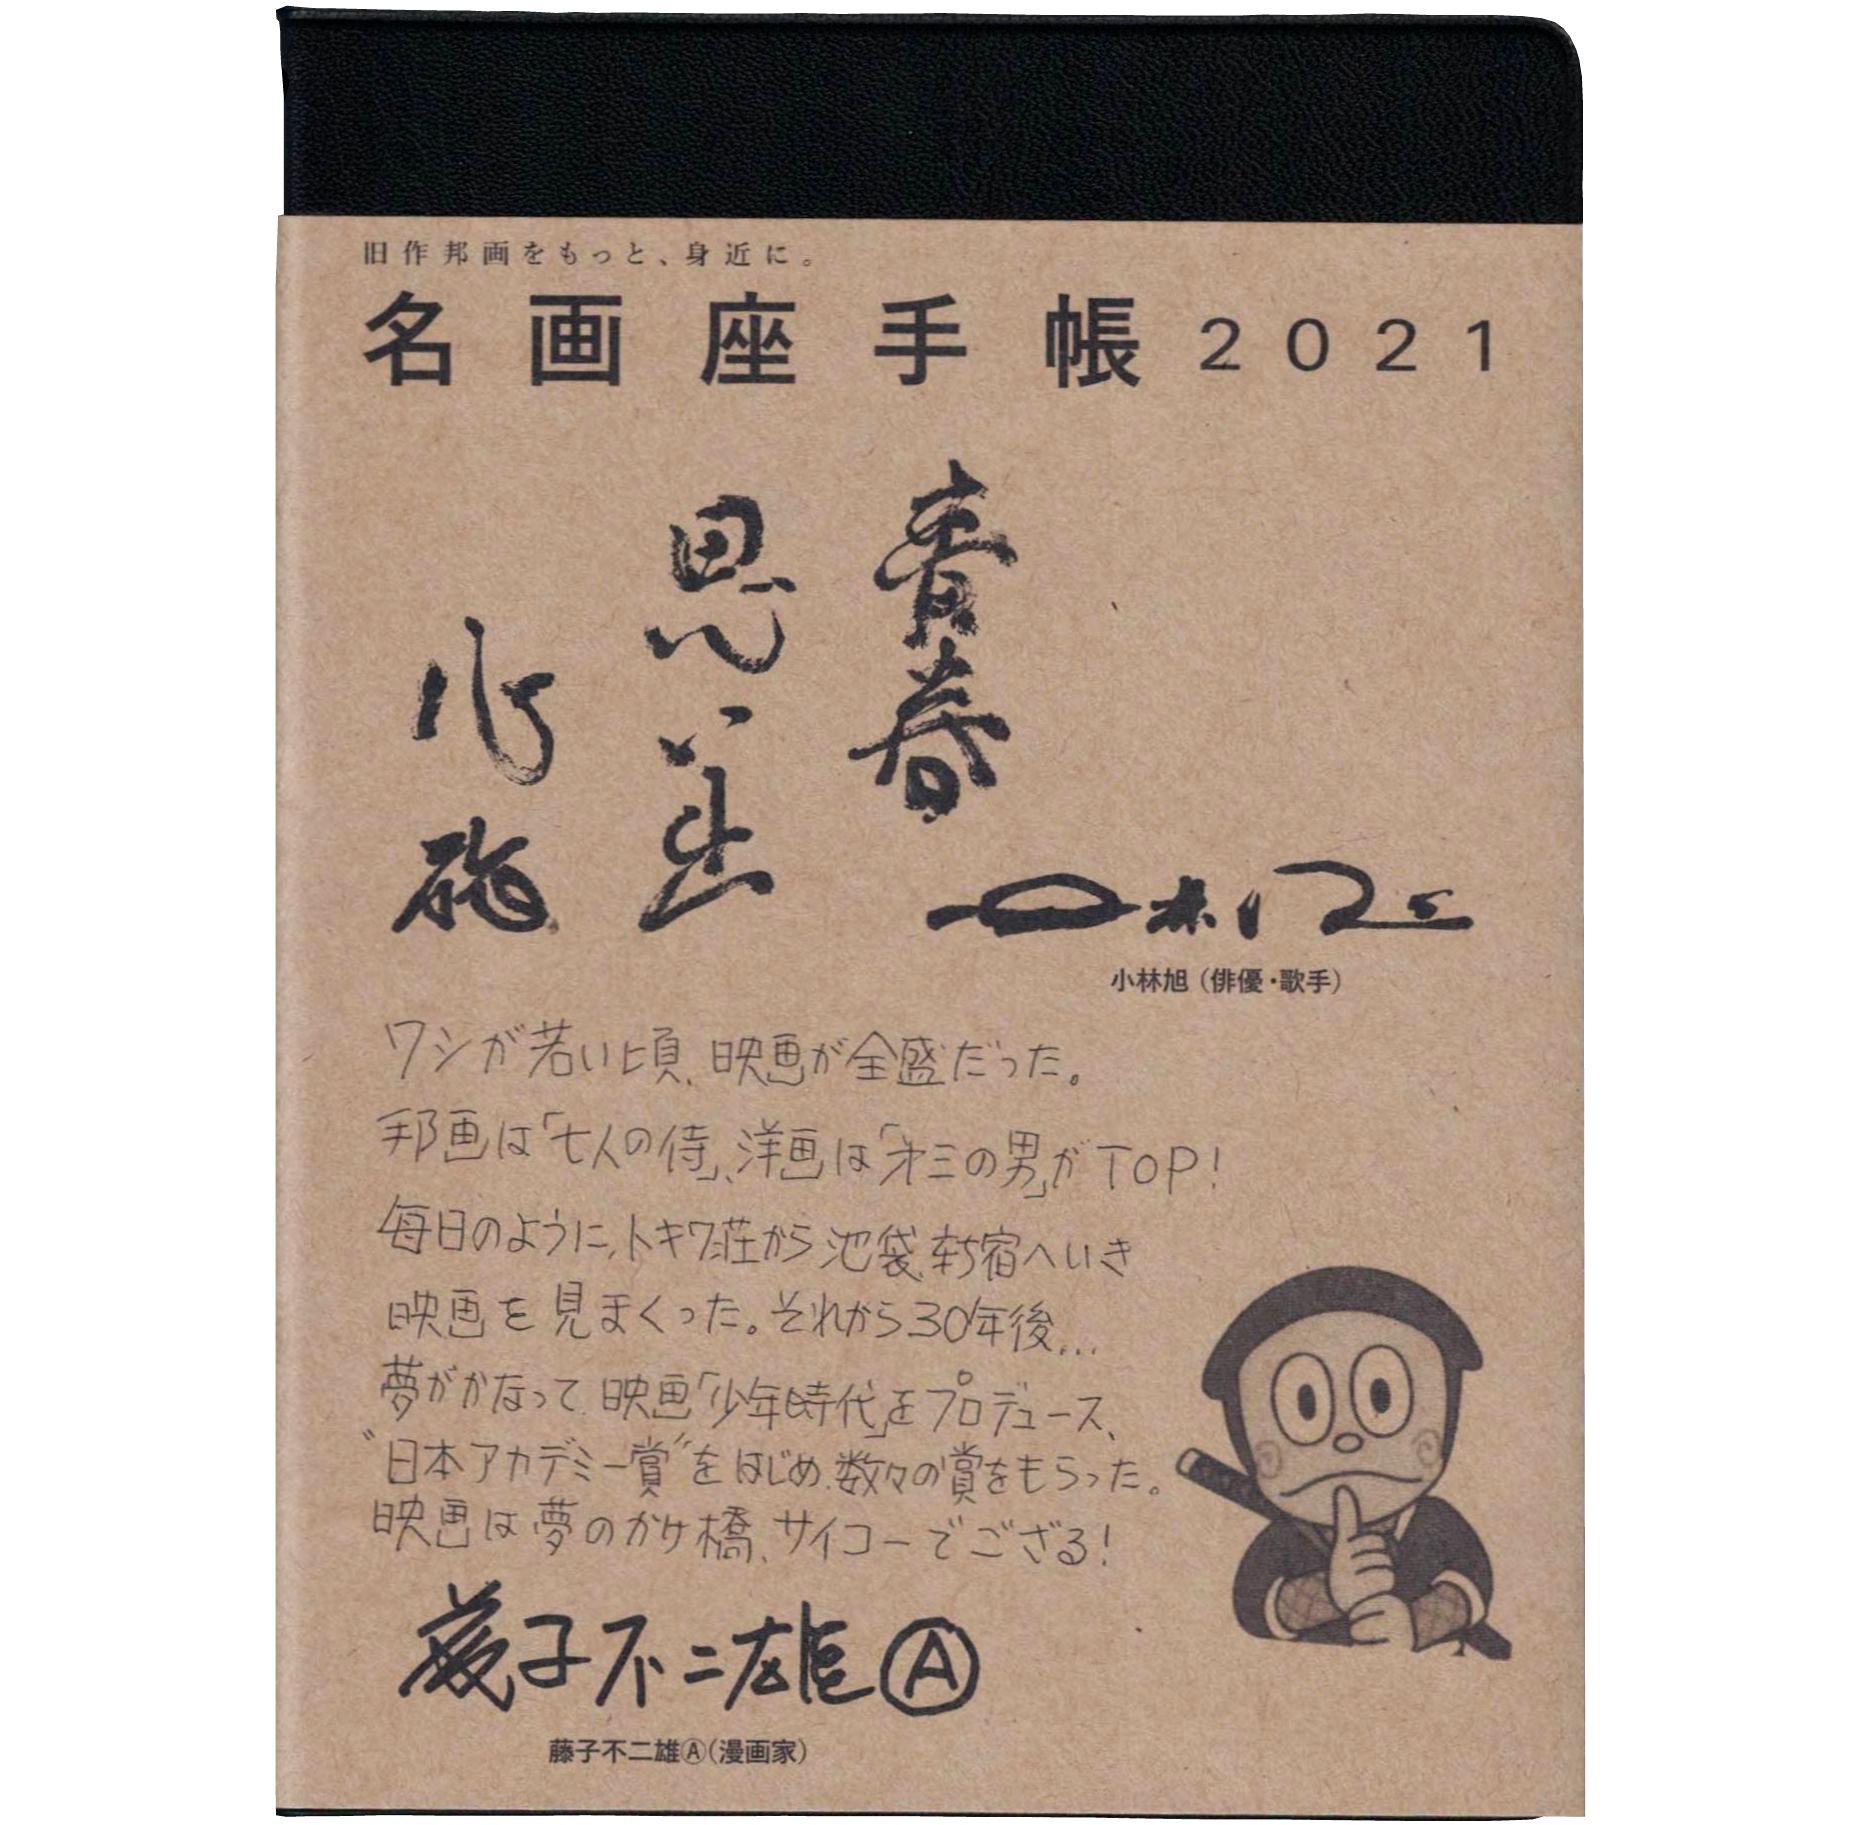 旧作邦画をもっと、身近に。
名画座手帳2021
青春
思い出
心
小林旭（俳優・歌手）
ワシが若い頃、映画が全盛だった。
邦画は「七人の侍」、洋画は「オ三の男」がTOP!
毎日のように、トキワ荘から池袋、新宿へいき
映画を見まくった。それから30年後...
夢がかなって、映画「少年時代」をプロデュース、
"日本アカデミー賞"をはじめ、数々の賞をもらった。
映画は夢のかけ橋、サイコーでござる!
藤子不二雄Ⓐ
藤子不二雄Ⓐ(漫画家)